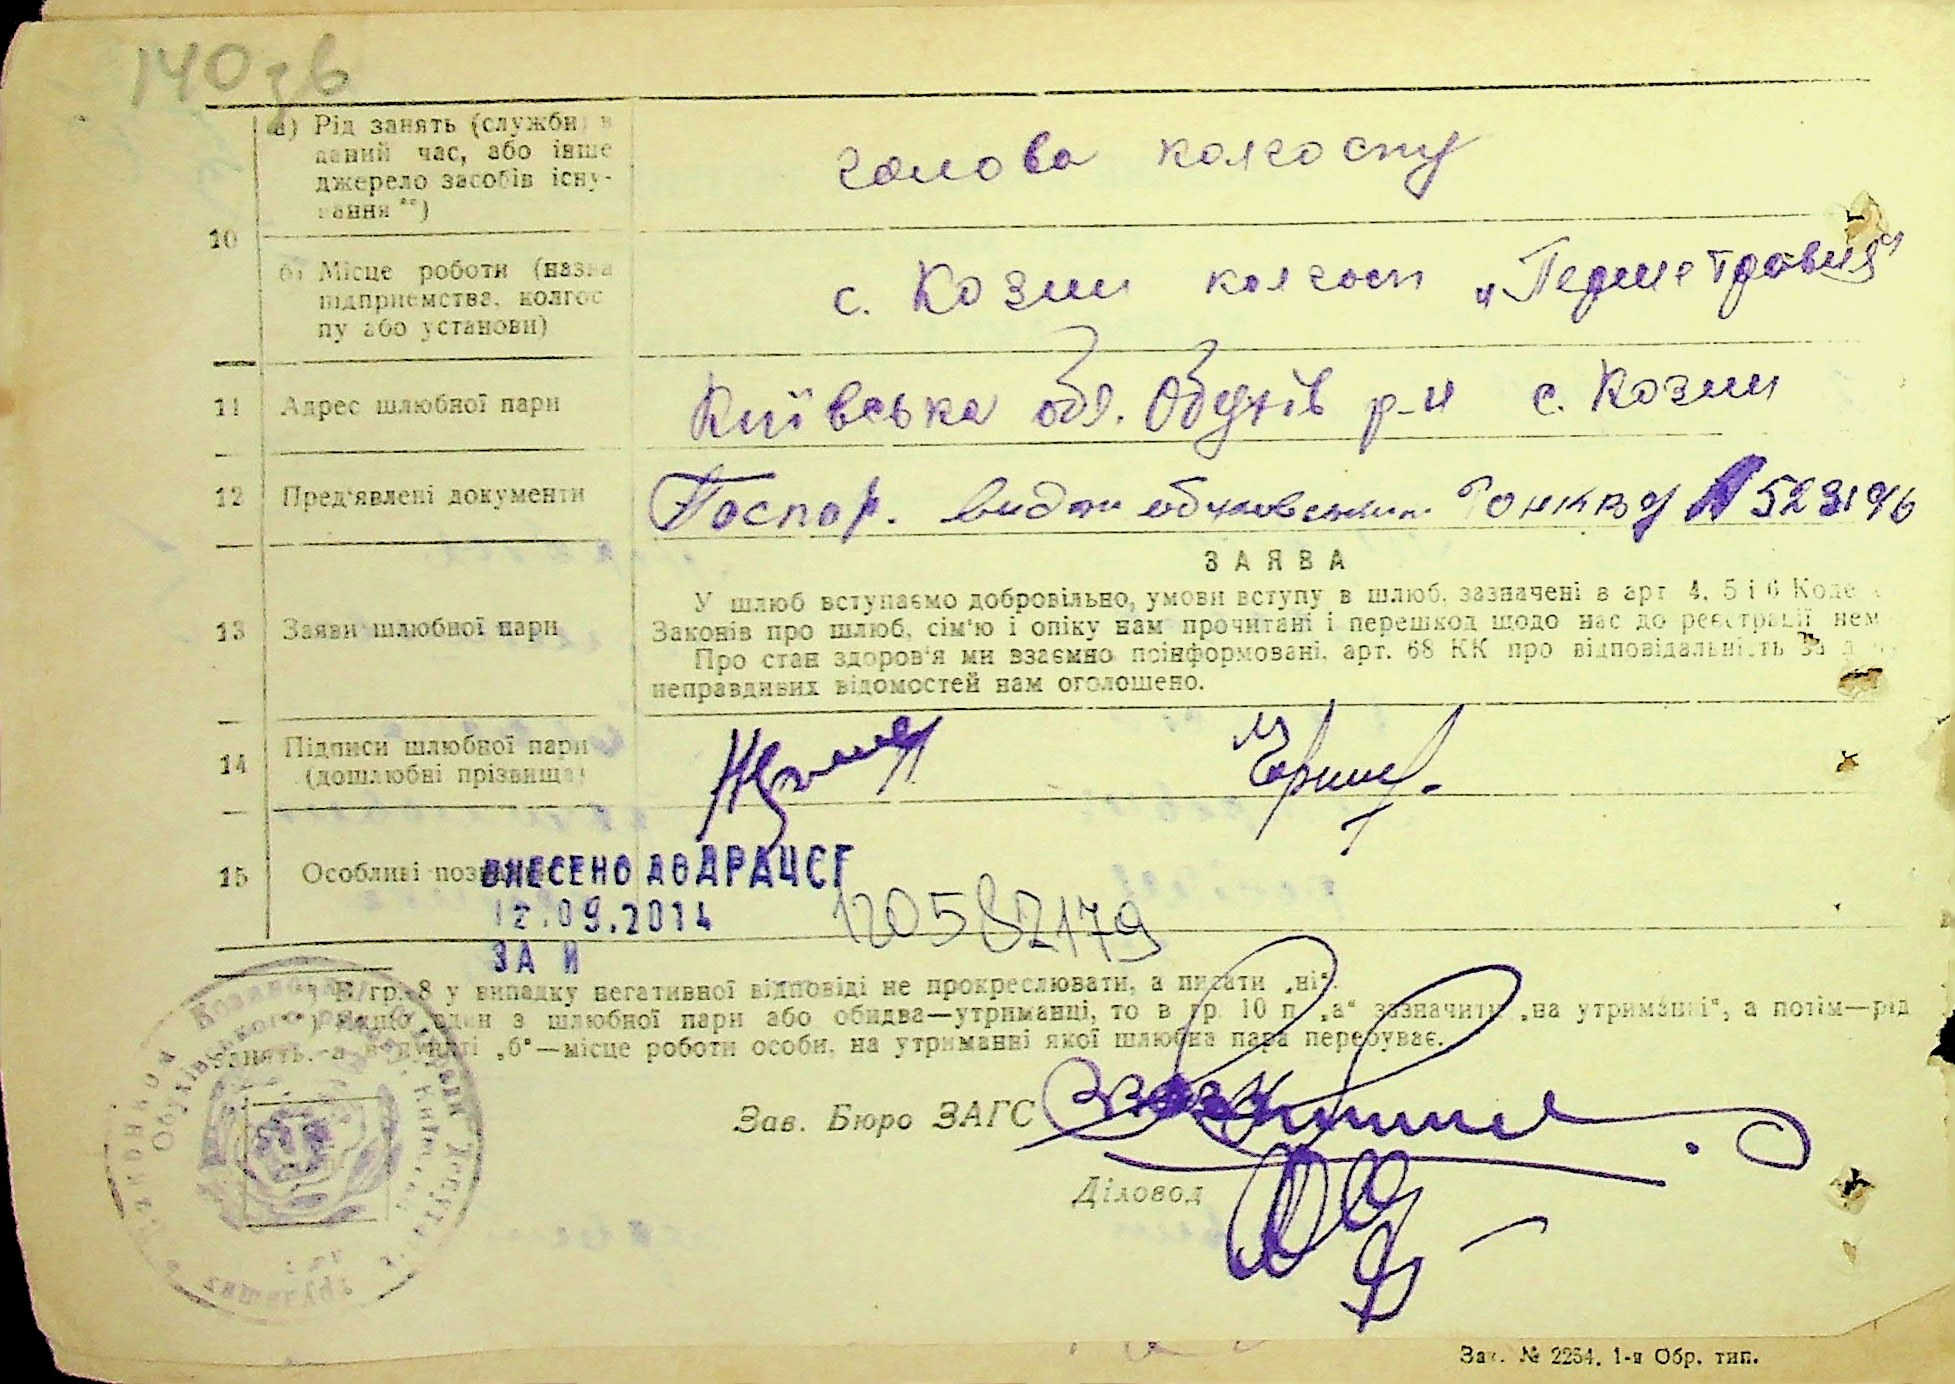 140 зв
10
а) Рід занять (служби) в
даний час, або інше
джерело засобів існу-
вання **)
голова колгоспу
б) Місце роботи (назва
підприємства, колгос
пу або установи)
с. Козин колгосп „Перше травня“
11 Адрес шлюбної пари
Київська обл. Обухів р-н с. Козин
12 Пред'явлені документи
Паспор. видан Обухівським РОНКВД 523196
13 Заяви шлюбної пари
ЗАЯВА
У шлюб вступаємо добровільно, умови вступу в шлюб, зазначені в арт 4, 5 і 6 Коде
Законів про шлюб, сім'ю і опіку нам прочитані і перешкод щодо нас до реєстрації нем
Про стан здоров'я ми взаємно поінформовані, арт. 68 КК про відповідальність за
неправдивих відомостей нам оголошено.
14 Підписи шлюбної пари
(дошлюбні прізвища)
15 Особливі позначки
ВНЕСЕНО ДО ДРАЦСГ
12.09.2014
ЗА И
120582179
*) В гр. 8 у випадку негативної відповіді не прокреслювати, а писати „ні“.
**) Якщо один з шлюбної пари або обидва—утриманці, то в гр. 10 п. „а“ зазначити „на утриманні“, а потім—рід
занять, а в пункті „б“—місце роботи особи, на утриманні якої шлюбна пара перебуває.
Зав. Бюро ЗАГС
Діловод
Зак. № 2254. 1-я Обр. тип.